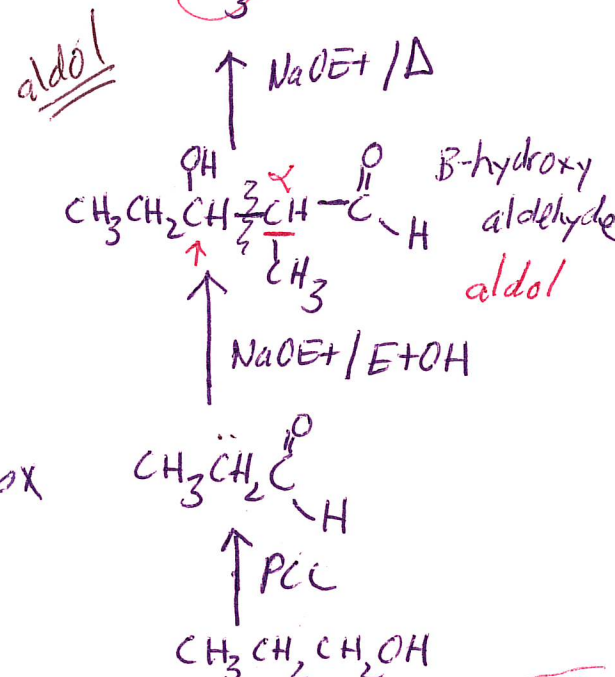 3
aldol
NaOEt / Δ
OH O
CH3CH2CH CH - C
α
H
CH3
B-hydroxy
aldehyde
aldol
NaOEt / EtOH
O
CH3CH2C
H
ox
PCC
CH3CH2CH2OH